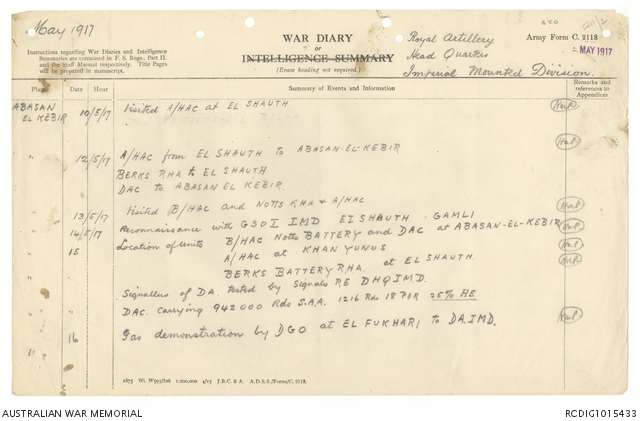 May 1917
WAR DIARY
or
INTELLIGENCE SUMMARY
(Erase heading not required.)
Instructions regarding War Diaries and Intelligence
Summaries are contained in F. S. Regs., Part II.
and the Staff Manual respectively. Title Pages
will be prepared in manuscript.
Royal Artillery
Head Quarters
Imperial Mounted Division.
Army Form C. 2118
MAY 1917
Place Date Hour Summary of Events and Information Remarks and references to Appendices
ABASAN EL KEBIR 10/5/17 Visited A/HAC at EL SHAUTH
" 12/5/17 A/HAC from EL SHAUTH to ABASAN-EL-KEBIR
BERKS RHA to EL SHAUTH
DAC to ABASAN EL KEBIR
" 13/5/17 Visited B/HAC and NOTTS RHA & A/HAC
" 14/5/17 Reconnaissance with GSO I IMD EI SHAUTH - GAMLI
" 15 Location of units B/HAC Notts BATTERY and DAC at ABASAN-EL-KEBIR
A/HAC at KHAN YUNUS
BERKS BATTERY RHA. at EL SHAUTH
Signallers of DA. tested by Signals RE DHQ IMD.
DAC carrying 942000 Rds S.A.A. 1216 Rds 18 PDR 25% HE
" 16 Gas demonstration by DGO at EL FUKHARI to DA.IMD.
1.000,000 4/17 J.B.C. & A. A.D.S.S./Forms/C. 2118.
AUSTRALIAN WAR MEMORIAL
RCDIG1015433